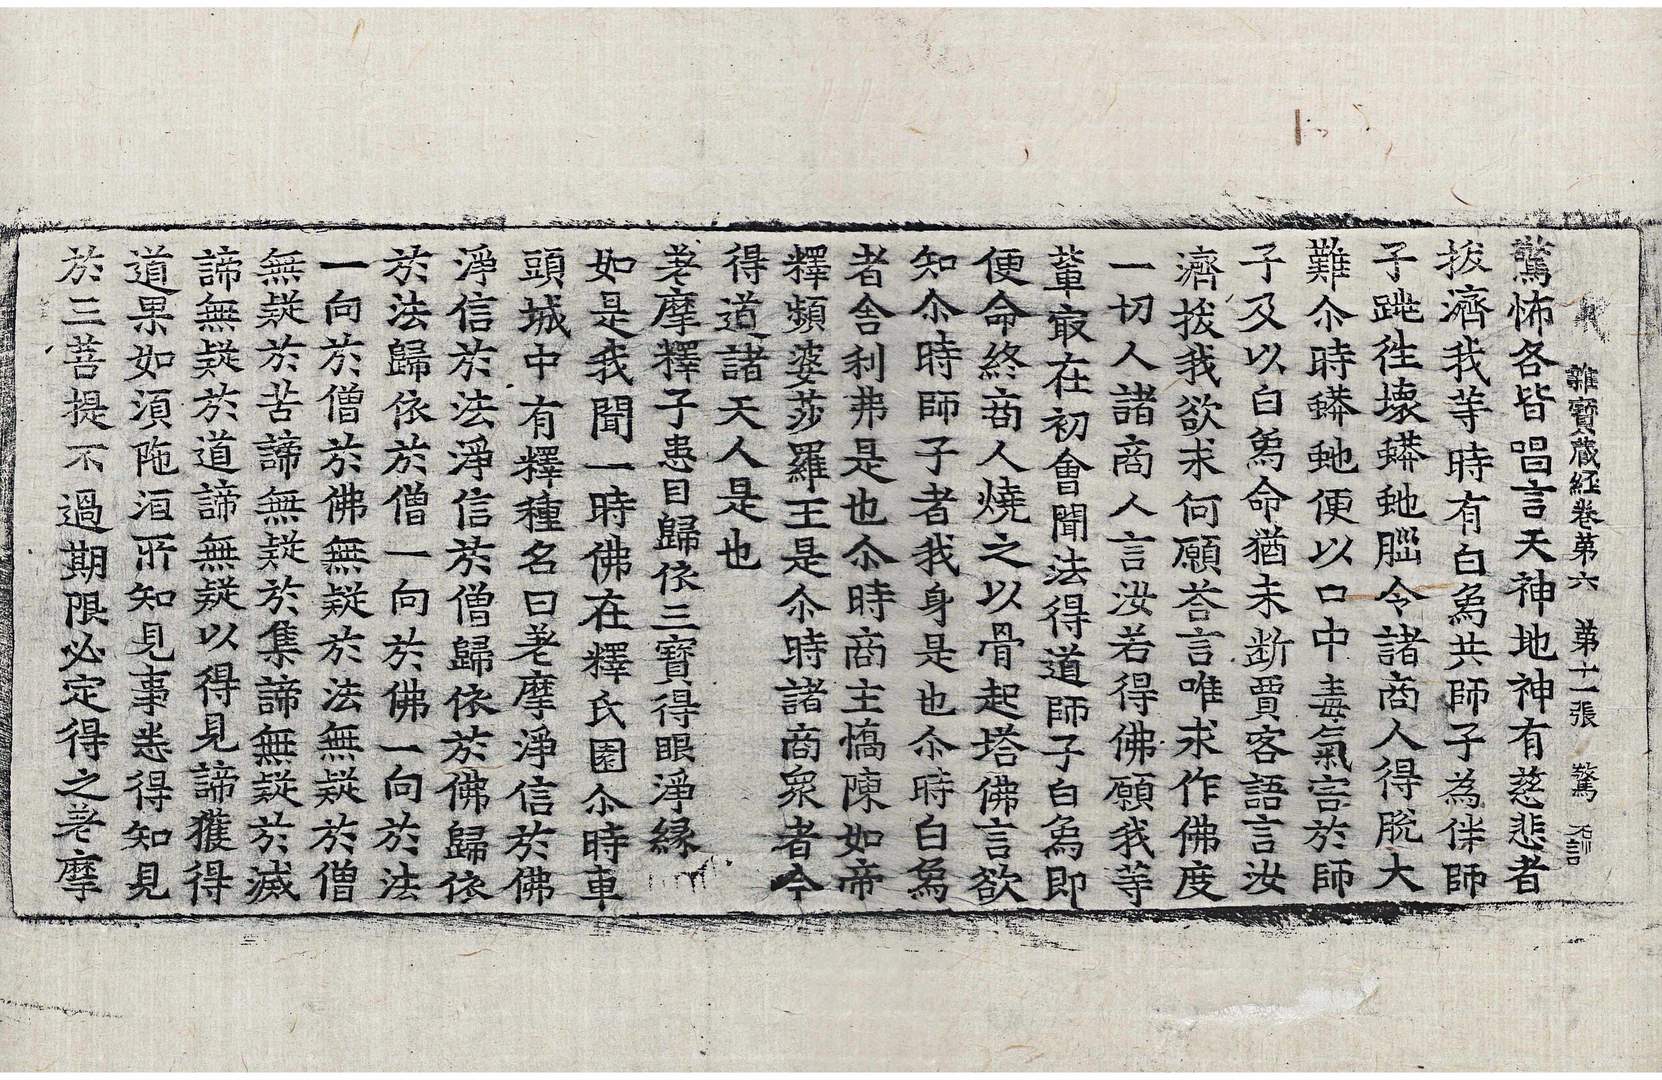 雜寶藏經卷第六　第十一張　驚
驚怖各皆唱言天神地神有慈悲者
拔濟我等時有白爲共師子為伴師
子跳往壞蟒虵𦛁令諸商人得脫大
難尒時蟒虵便以口中毒氣害於師
子及以白爲命猶未断賈客語言汝
濟拔我欲求何願荅言唯求作佛度
一切人諸商人言汝若得佛願我等
軰㝡在初會聞法得道師子白爲即
便命終商人燒之以骨起塔佛言欲
知尒時師子者我身是也尒時白爲
者舍利弗是也尒時商主憍陳如帝
釋頻婆莎羅王是尒時諸商衆者今
得道諸天人是也
差摩釋子患目歸依三寶得眼淨緣
如是我聞一時佛在釋氏園尒時車
頭城中有釋種名曰差摩淨信於佛
淨信於法淨信於僧歸依於佛歸依
於法歸依於僧一向於佛一向於法
一向於僧於佛無疑於法無疑於僧
無疑於苦諦無疑於集諦無疑於滅
諦無疑於道諦無疑以得見諦獲得
道果如須陁洹所知見事悉得知見
於三菩提不過期限必定得之差摩